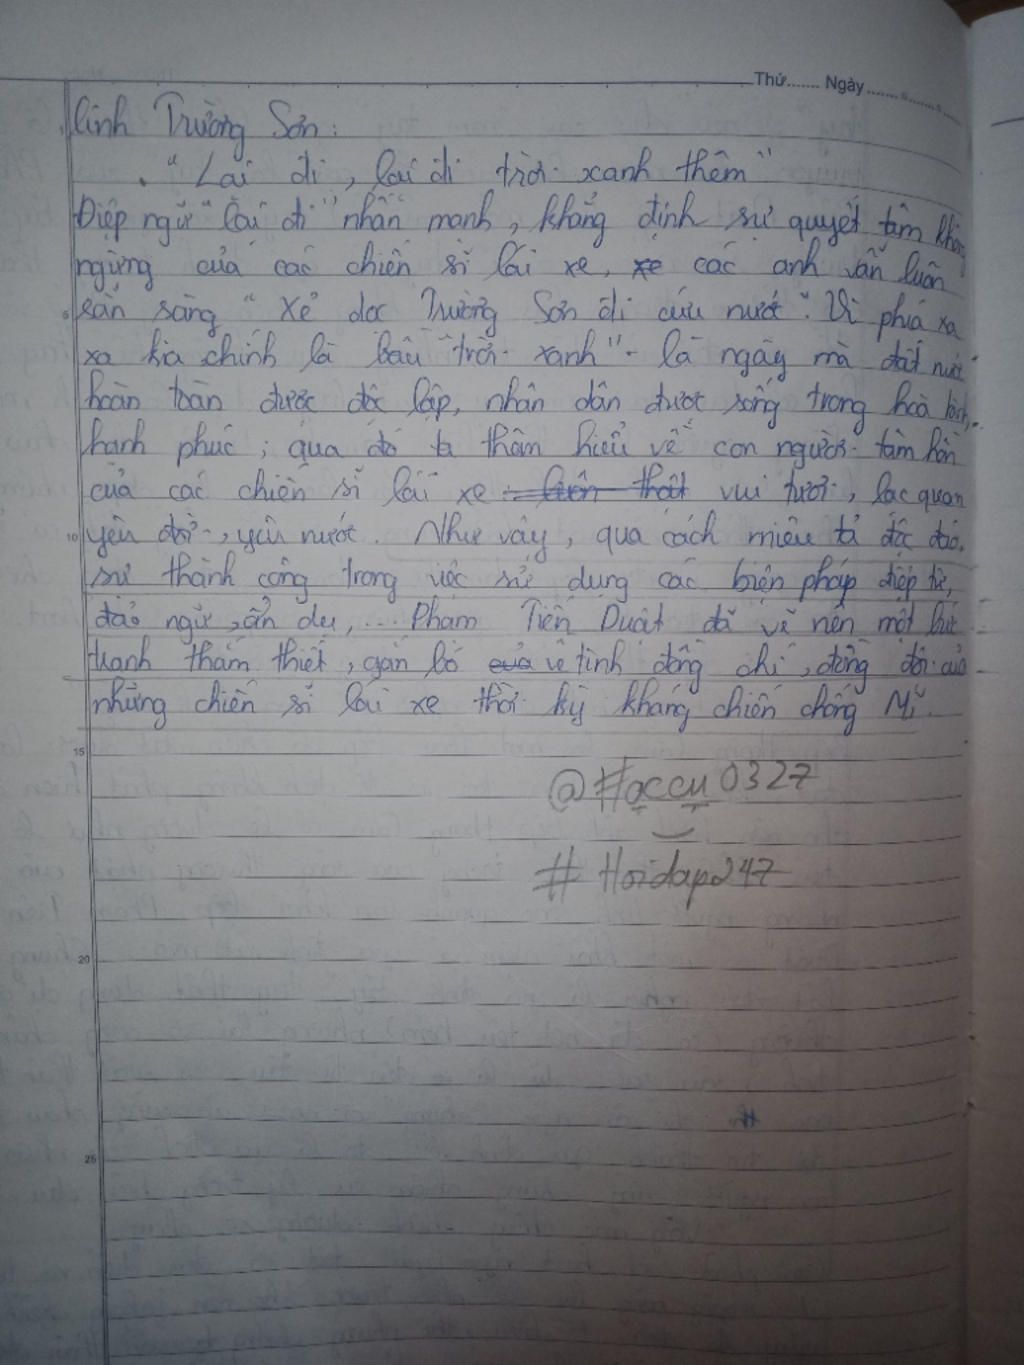 Thứ....... Ngày.......
lính Trường Sơn:
"Lại đi, lại đi trời xanh thêm"
Điệp ngữ "lại đi" nhấn mạnh, khẳng định sự quyết tâm không
ngừng của các chiến sĩ lái xe, xe các anh vẫn luôn
sẵn sàng "Xẻ dọc Trường Sơn đi cứu nước". Vì phía xa
xa kia chính là bầu "trời xanh" - là ngày mà đất nước
hoàn toàn được độc lập, nhân dân được sống trong hoà bình,
hạnh phúc; qua đó ta thêm hiểu về con người tâm hồn
của các chiến sĩ lái xe: luôn thật vui tươi, lạc quan
yêu đời, yêu nước. Như vậy, qua cách miêu tả độc đáo,
5
10
sự thành công trong việc sử dụng các biện pháp điệp từ,
đảo ngữ, ẩn dụ,... Phạm Tiến Duật đã vẽ nên một bức
tranh thắm thiết, gắn bó của về tình đồng chí, đồng đội của
những chiến sĩ lái xe thời kỳ kháng chiến chống Mĩ.
15
@Haccu0327
# Hoidap247
20
25